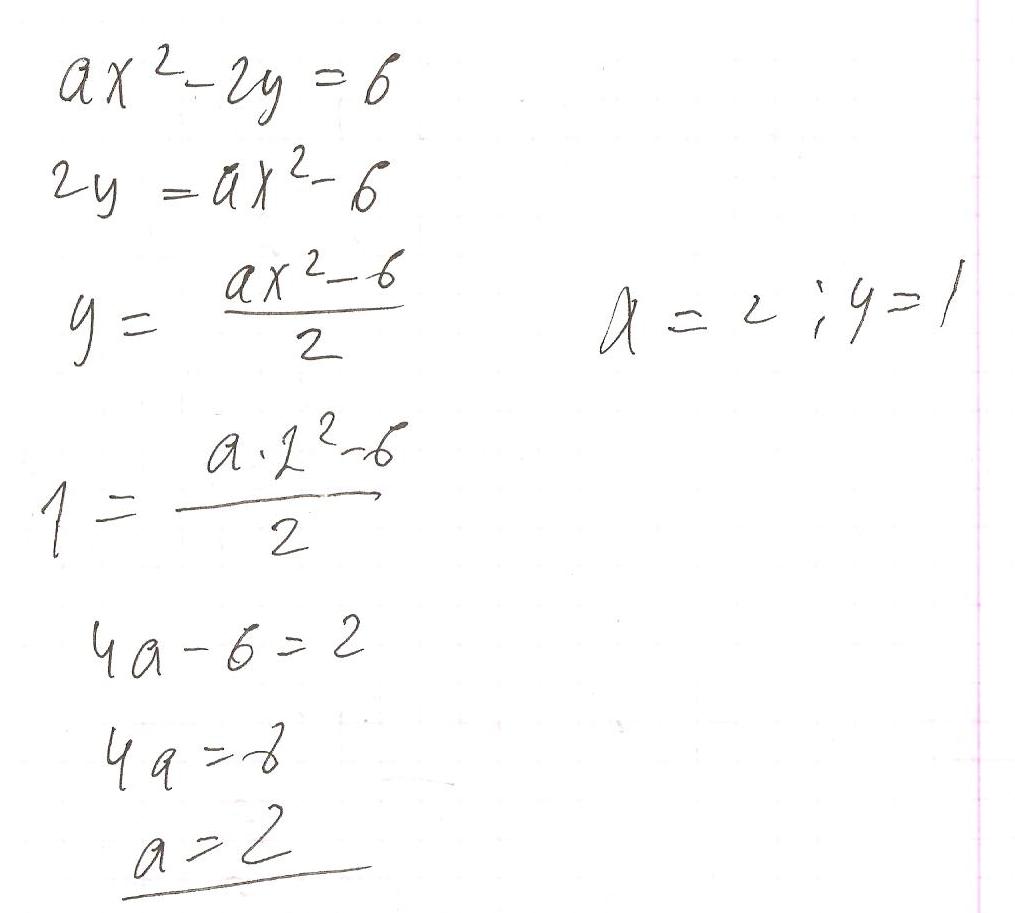 ax² - 2y = 6
2y = ax² - 6
y = (ax² - 6)/2
x = 2 ; y = 1
1 = (a · 2² - 6)/2
4a - 6 = 2
4a = 8
a = 2